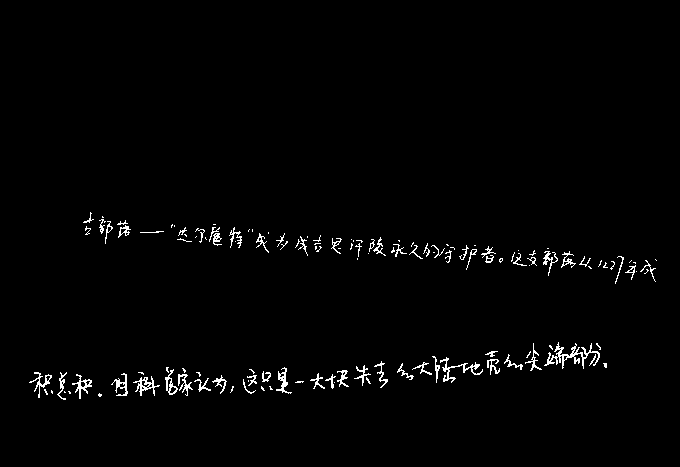 古部落—“达尔扈特”成为成吉思汗陵永久的守护者。这支部落从1227年成
积总积。但科学家认为,这只是一大块失去的大陆地壳的尖端部分。